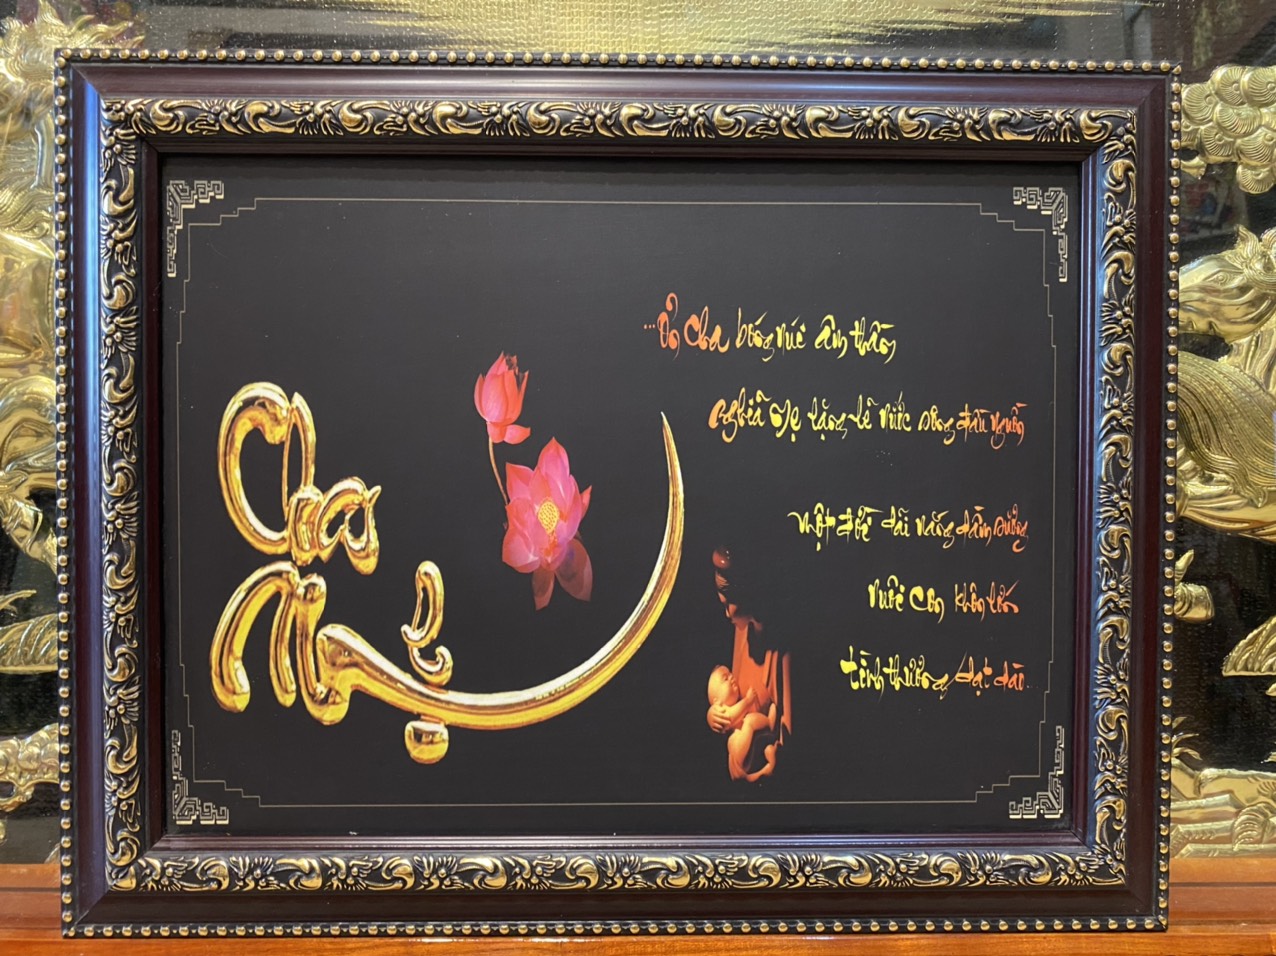 Cha
Mẹ
...Ơn Cha bóng núi âm thầm
Nghĩa Mẹ lặng lẽ nước sông đầu nguồn
Một đời dãi nắng dầm sương
Nuôi con khôn lớn
tình thương dạt dào